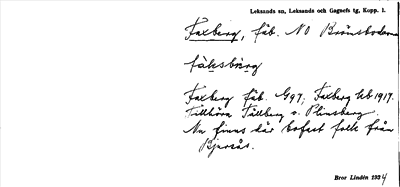 Leksands sn, Leksands och Gagnefs tg, Kopp. l.
Faxberg, fäb. NO Brändboderna
fàksbærg
Faxberg fäb. G97; Faxberg hb 1917.
Tillhöra Tällberg o. Plintsberg.
Nu finns där bofast folk från
Bjursås.
Bror Lindén 1934